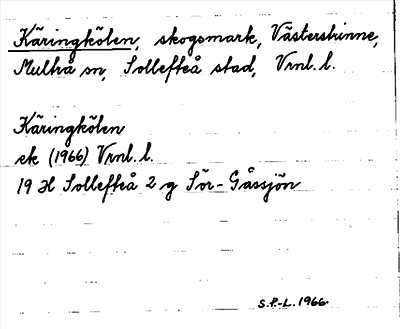 Käringkölen, skogsmark, Västerstrinne,
Multrå sn, Sollefteå stad, Vrnl. l.
Käringkölen
ek (1966) Vrnl. l.
19 H Sollefteå 2 g Sör-Gåssjön
S.P.-L. 1966.